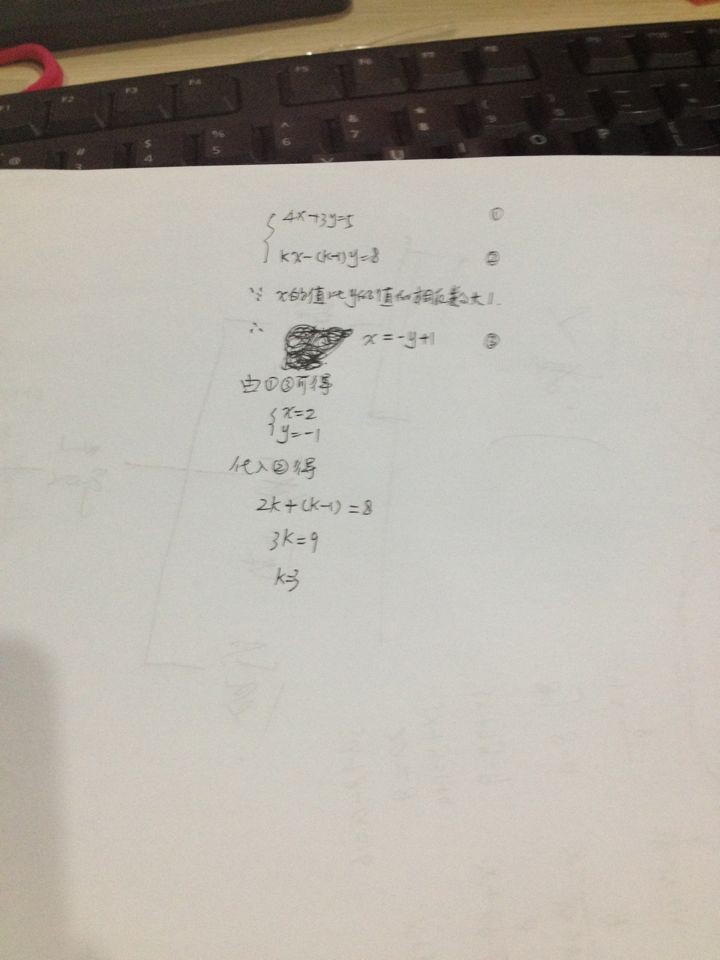 F1 F2 F3 F4 F5 F6 F7 F8
@ # $ 4 % 5 ^ 6 & 7 * 8 ( 9 ) 0
Y U I O P
4x+3y=5 ①
kx-(k-1)y=8 ②
∵ x的值比y的值的相反数大1.
∴ x=-y+1 ③
由①③可得
x=2
y=-1
代入②得
2k+(k-1)=8
3k=9
k=3